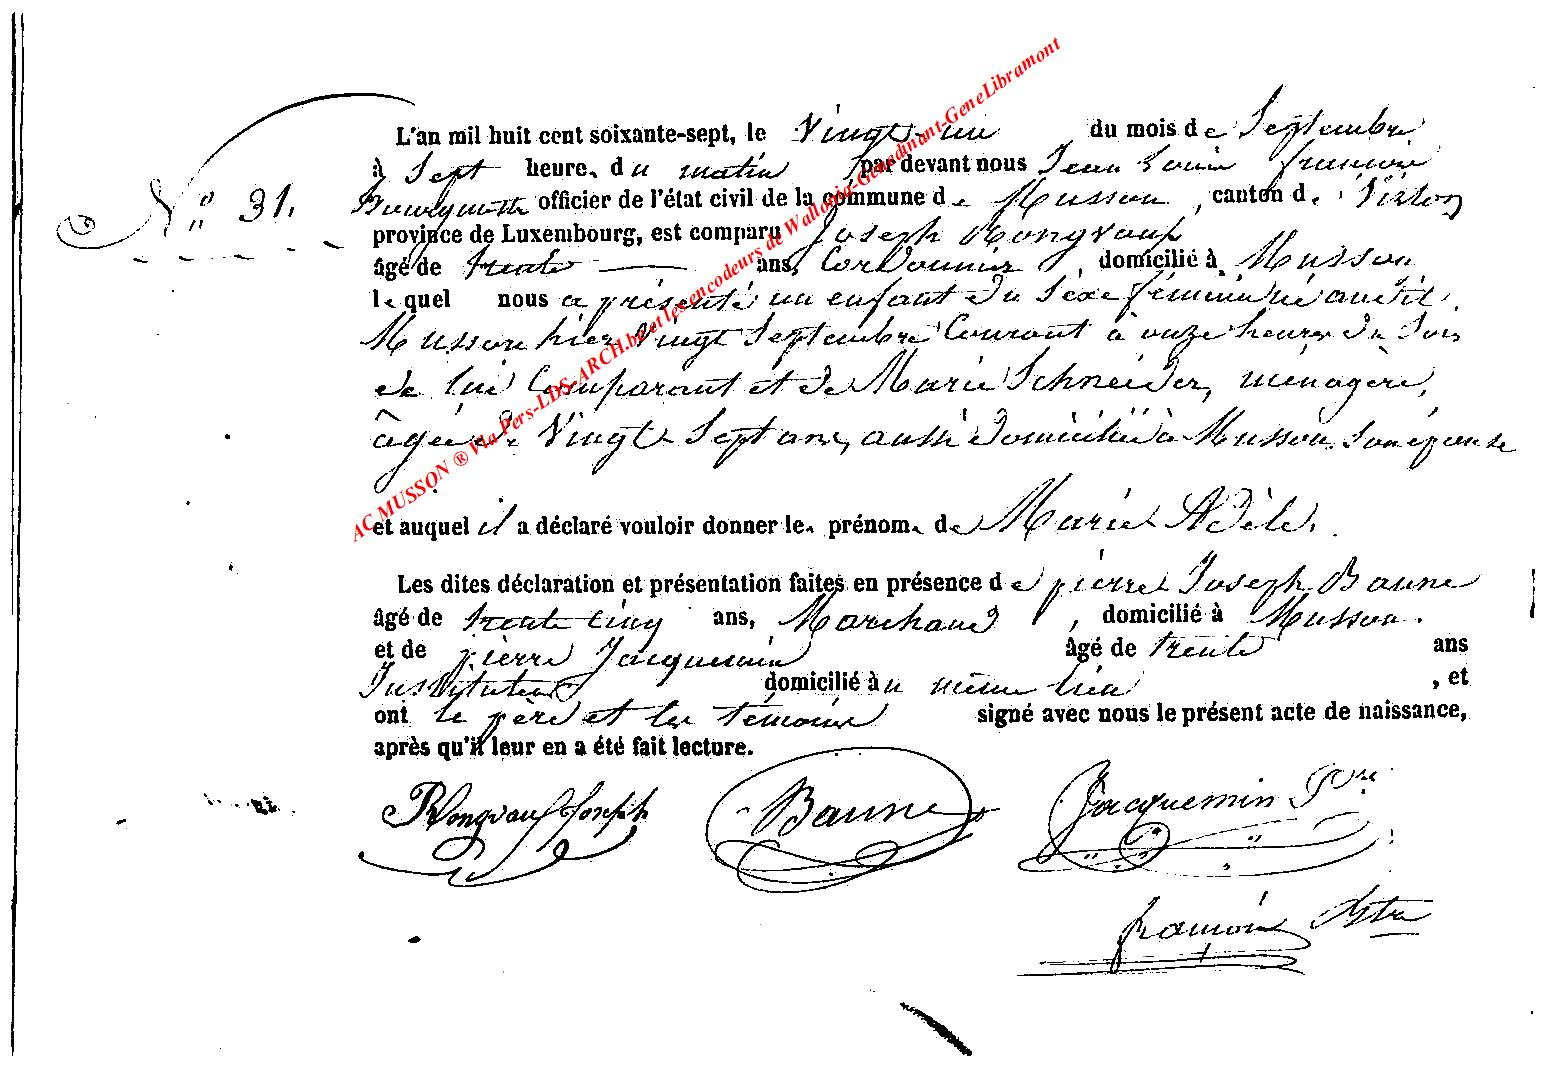 L'an mil huit cent soixante-sept, le Vingt-un du mois de Septembre
à Sept heure, du matin par devant nous Jean Louis françois
N° 31. officier de l'état civil de la commune de Musson, canton de Virton
province de Luxembourg, est comparu Joseph Rongvaux
âgé de trente ans, Cordonnier, domicilié à Musson
lequel nous a présenté un enfant du Sexe féminin né audit
Musson hier Vingt Septembre Courant à onze heures du Soir
de lui Comparant et de Marie Schneider, ménagère,
âgée de Vingt Sept ans, aussi domiciliée à Musson Son épouse
et auquel il a déclaré vouloir donner les prénoms de Marie Adèle.
Les dites déclaration et présentation faites en présence de pierre Joseph Baune
âgé de trente Cinq ans, Marchand, domicilié à Musson.
et de pierre Jacquemin âgé de trente ans
Instituteur domicilié au même lieu, et
ont le père et les témoins signé avec nous le présent acte de naissance,
après qu'il leur en a été fait lecture.
Rongvaux Joseph Baune Jacquemin Prre
françois
AC MUSSON ® Via Pers-LDS-ARCH.be et les encodeurs de Wallonia-Genedinant-GeneLibramont